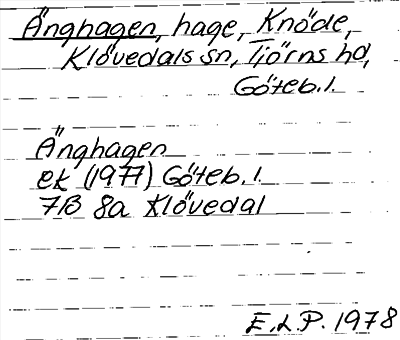 Änghagen, hage, Knöde,
Klövedals sn, Tjörns hd,
Göteb.l.
Änghagen
ek (1977) Göteb.l.
7B 8a Klövedal
E.L.P. 1978